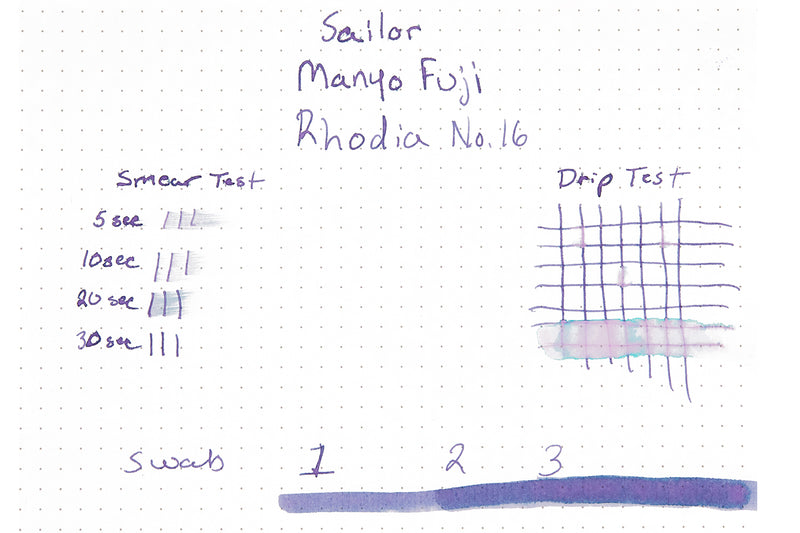 Sailor
Manyo Fuji
Rhodia No. 16
Smear Test
Drip Test
5 sec
10 sec
20 sec
30 sec
Swab 1 2 3